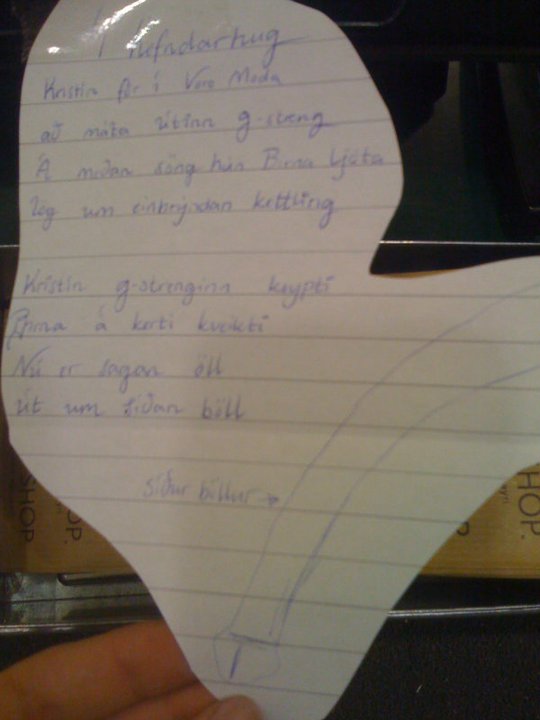 Í hefndarhug
Kristín fór í Vero Moda
að máta útinn g-streng
Á meðan söng hún Birna ljóta
lög um einbrýndan kettling
Kristín g-strenginn keypti
Birna á kerti kveikti
Nú er sagan öll
út um síðan böll
síður böllur →
SHOP
OP.
HOP.
HOP